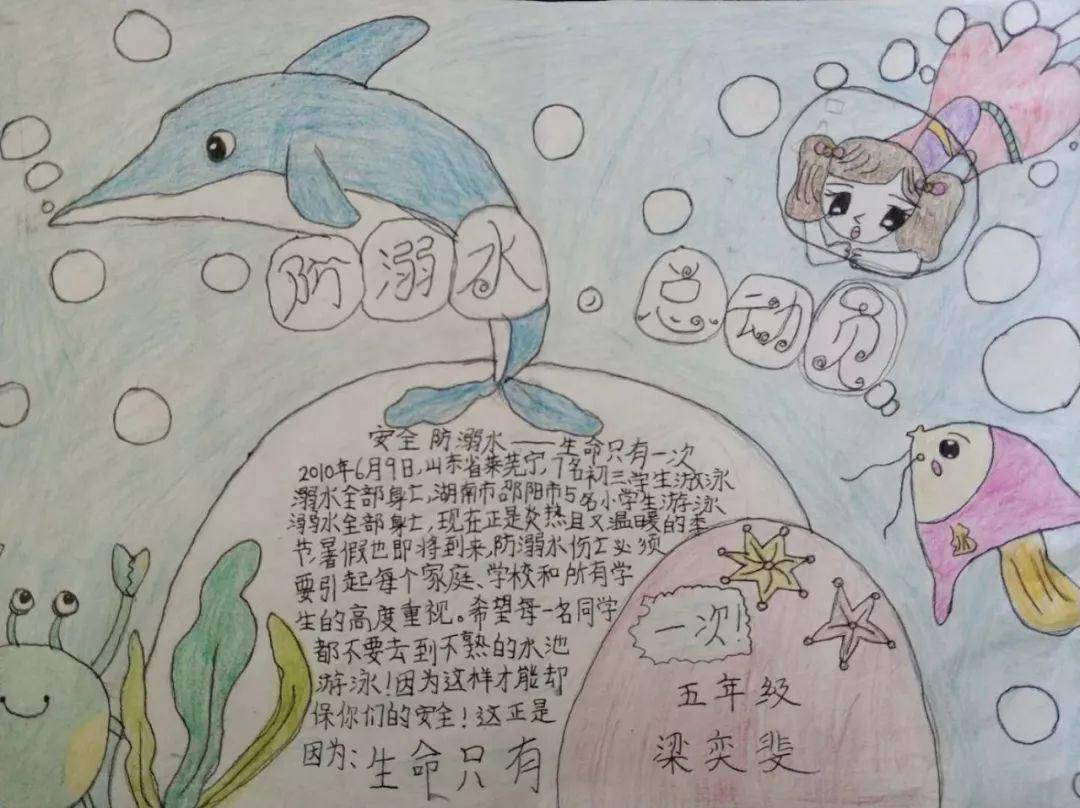 防溺水
总动员
安全 防溺水——生命只有一次
2010年6月9日,山东省莱芜宁,7名初三学生游泳
溺水全部身亡,湖南市邵阳市5名小学生游泳
溺水全部身亡,现在正是炎热且又温暖的季
节,暑假也即将到来,防溺水伤亡必须
要引起每个家庭、学校和所有学
生的高度重视。希望每一名同学
都不要去到不熟的水池
游泳!因为这样才能却
保你们的安全!这正是
因为:生命只有
一次!
五年级
梁奕斐
水